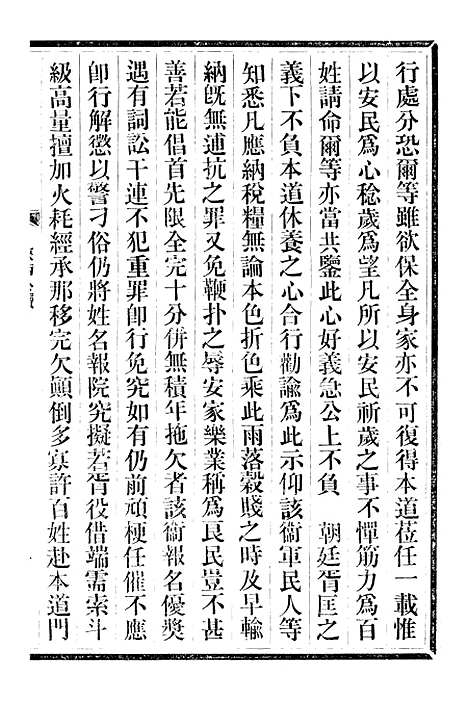 行處分恐爾等雖欲保全身家亦不可復得本道莅任一載惟
以安民爲心稔歲爲望凡所以安民祈歲之事不憚筋力爲百
姓請命爾等亦當共鑒此心好義急公上不負　朝廷胥匡之
義下不負本道休養之心合行勸諭爲此示仰該衞軍民人等
知悉凡應納稅糧無論本色折色乘此雨落穀賤之時及早輸
納旣無逋抗之罪又免鞭扑之辱安家樂業稱爲良民豈不甚
善若能倡首先限全完十分併無積年拖欠者該衞報名優獎
遇有詞訟干連不犯重罪卽行免究如有仍前頑梗任催不應
卽行解懲以警刁俗仍將姓名報院究擬若胥役借端需索斗
級高量擅加火耗經承那移完欠顚倒多寡許百姓赴本道門